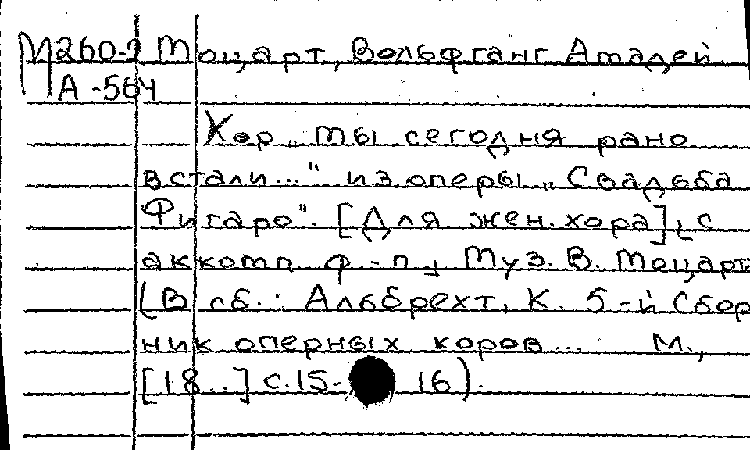 М260-2 Моцарт, Вольфганг Амадей
А-564
Хор „Мы сегодня рано
встали..." из оперы „Свадьба
Фигаро". [Для жен. хора], с
аккомп. ф.-п., Муз. В. Моцарт
(В сб.: Альбрехт, К. 5-й Сбор
ник оперных хоров... М.,
[18..] с. 15-16).